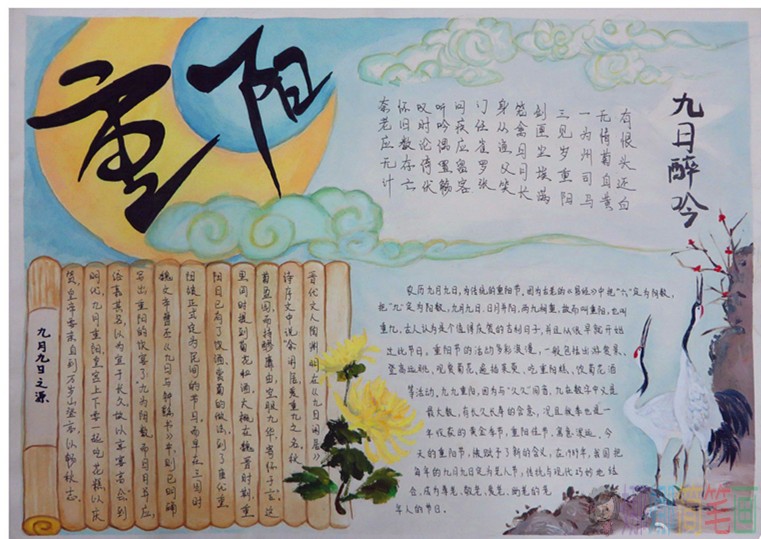 重阳
九日醉吟
有恨头还白
无情菊自黄
一为州司马
三见岁重阳
剑匣尘埃满
笼禽日月长
身从渔父笑
门任雀罗张
问疾应留客
听吟偶置觞
叹时论倚伏
怀旧数存亡
奈老应无计
农历九月九日，为传统的重阳节。因为古老的《易经》中把“六”定为阴数，
把“九”定为阳数，九月九日，日月并阳，两九相重，故而叫重阳，也叫
重九，古人认为是个值得庆贺的吉利日子，并且从很早就开始
过此节日。重阳节的活动多彩浪漫，一般包括出游赏景、
登高远眺、观赏菊花、遍插茱萸、吃重阳糕、饮菊花酒
等活动。九九重阳，因为与“久久”同音，九在数字中又是
最大数，有长久长寿的含意，况且秋季也是一
年收获的黄金季节，重阳佳节，寓意深远。今
天的重阳节，被赋予了新的含义，在1989年，我国把
每年的九月九日定为老人节，传统与现代巧妙地结
合，成为尊老、敬老、爱老、助老的老
年人的节日。
晋代文人陶渊明在《九日闲居》
诗序文中说“余闲居爱重九之名，秋
菊盈园，而持醪靡由，空服九华，寄怀于言”这
里同时提到菊花和酒。大概在魏晋时期，重
阳日已有了饮酒、赏菊的做法。到了唐代重
阳被正式定为民间的节日。而早在三国时
魏文帝曹丕《九日与钟繇书》中，则已明确
写出重阳的饮宴了“九为阳数，而日月并应，
俗嘉其名，以为宜于长久，故以享宴高会”到
明代，九月重阳，皇宫上下要一起吃花糕以庆
贺，皇帝要亲自到万岁山登高，以畅秋志。
九月九日之源
简笔画